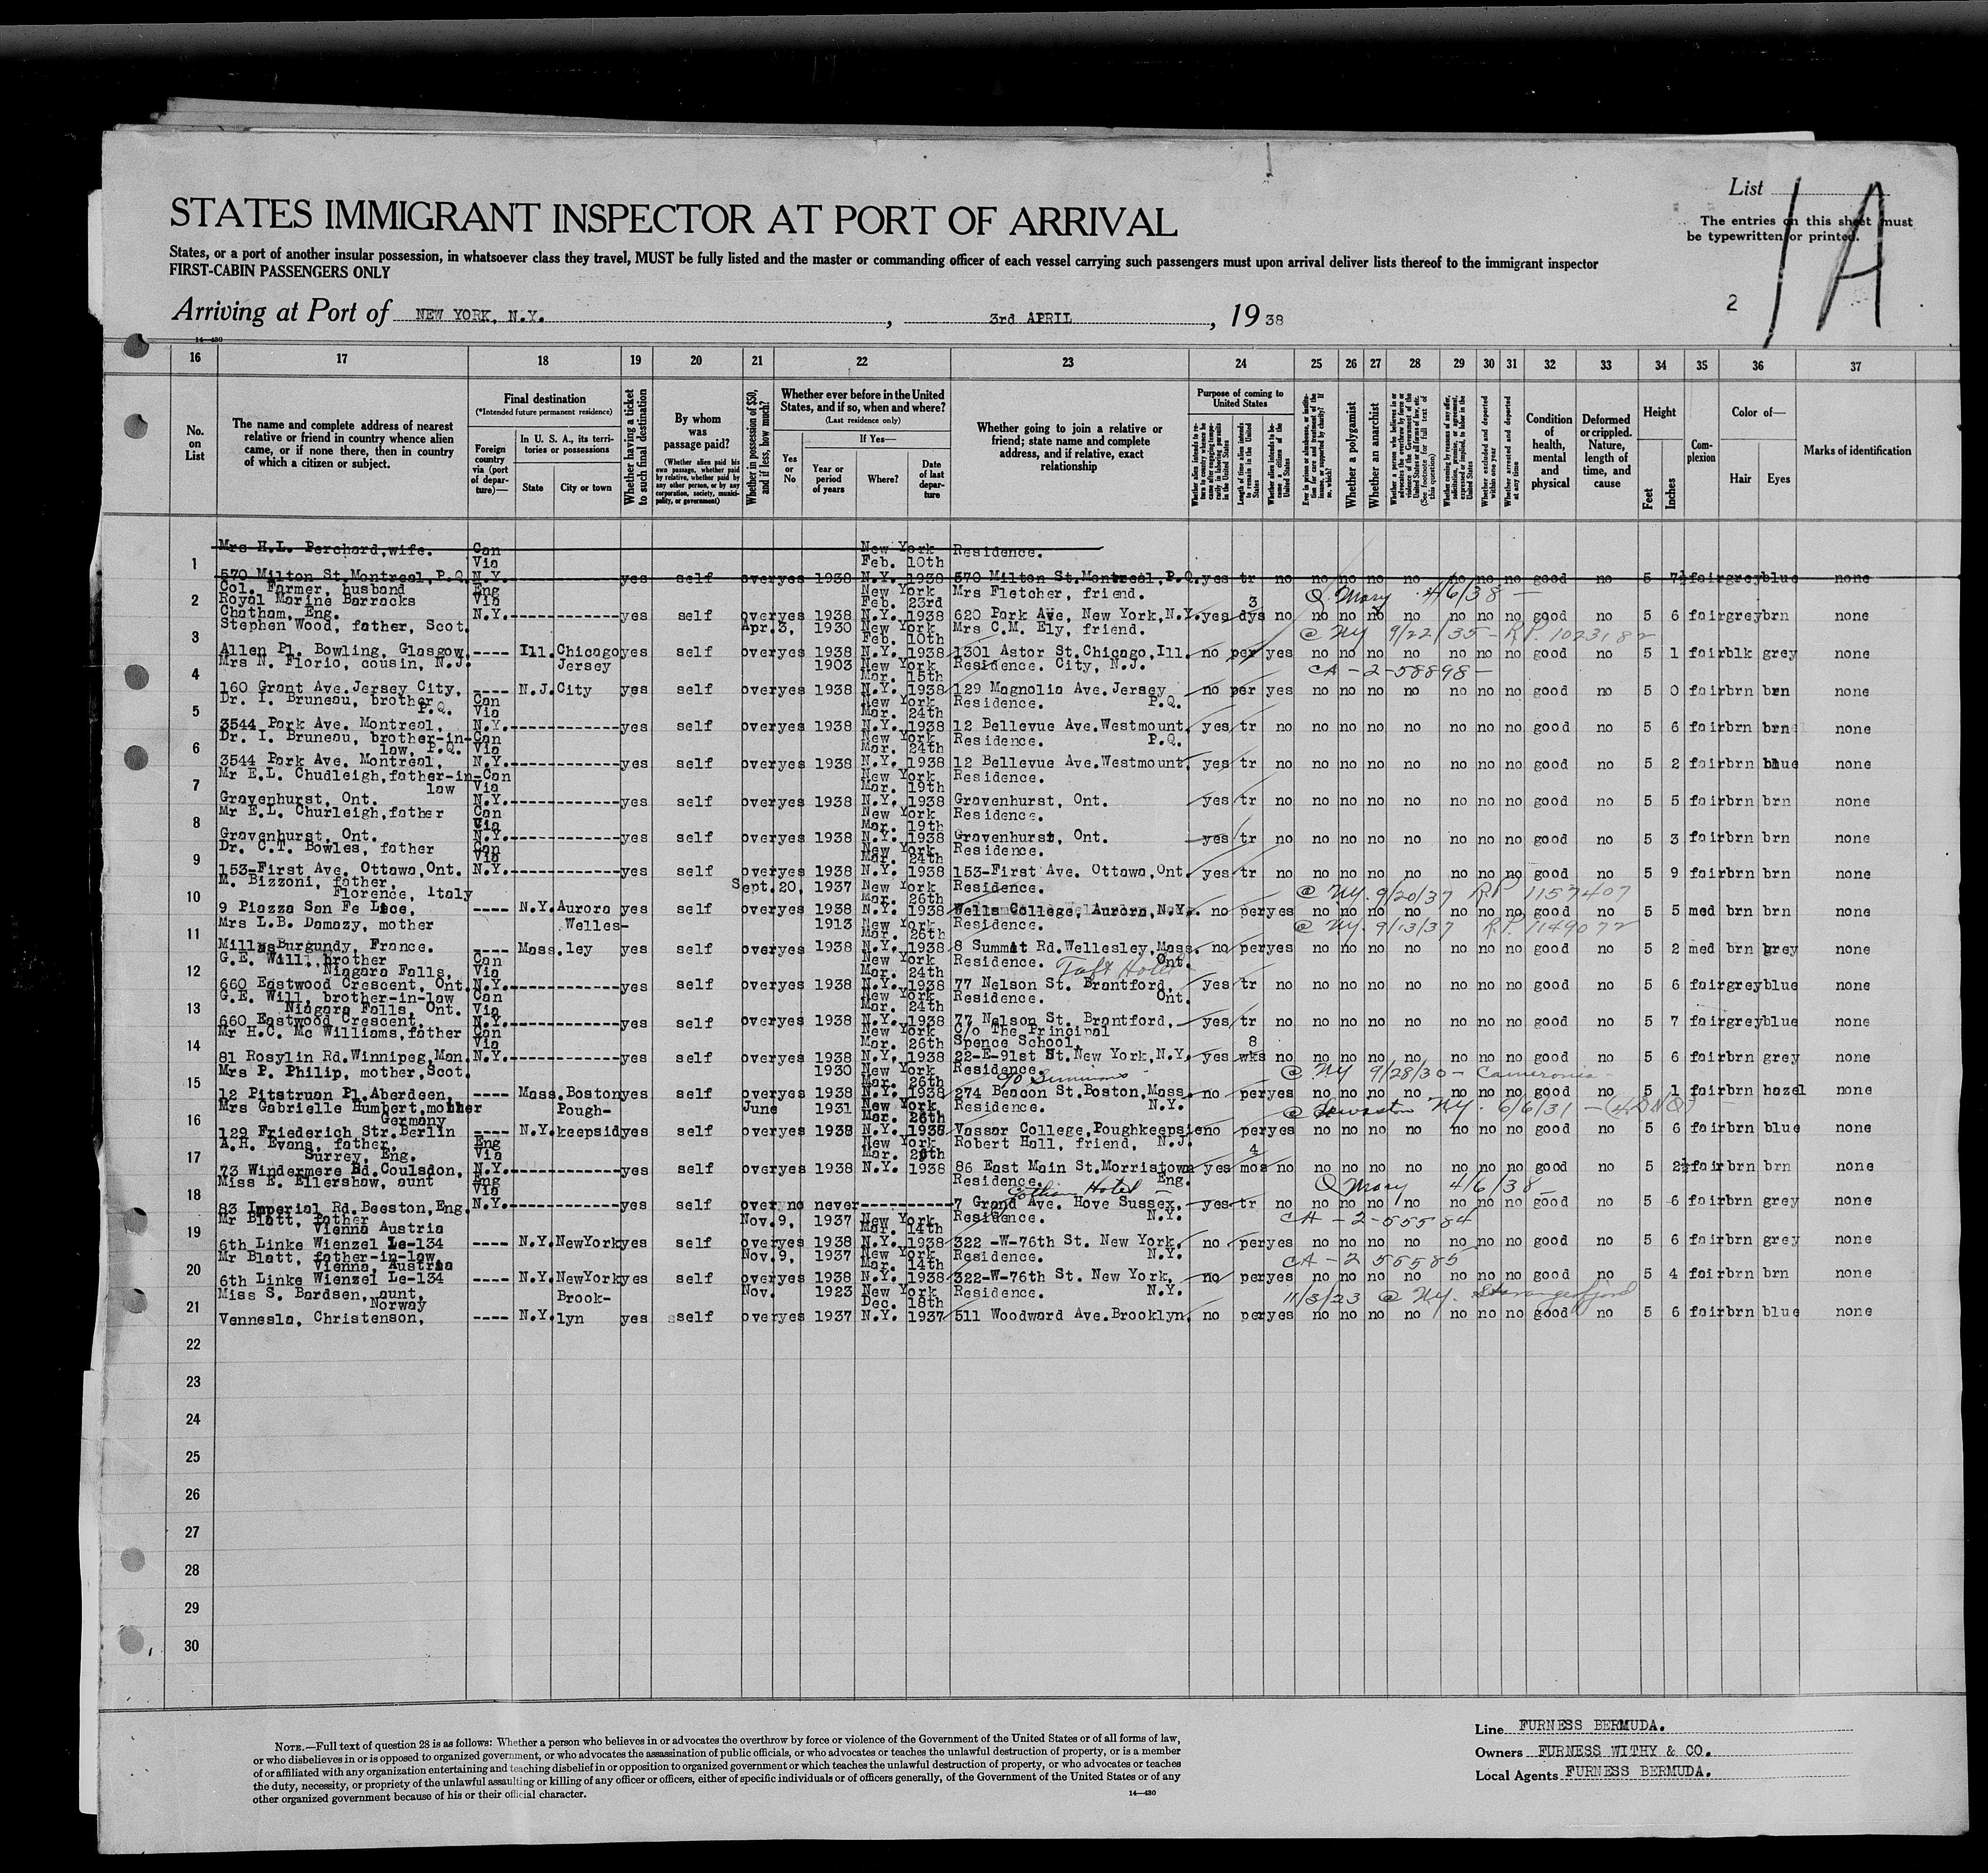 List
1A
STATES IMMIGRANT INSPECTOR AT PORT OF ARRIVAL
The entries on this sheet must
be typewritten or printed.
States, or a port of another insular possession, in whatsoever class they travel, MUST be fully listed and the master or commanding officer of each vessel carrying such passengers must upon arrival deliver lists thereof to the immigrant inspector
FIRST-CABIN PASSENGERS ONLY
2
Arriving at Port of NEW YORK, N.Y., 3rd APRIL, 1938
14—430
16 17 18 19 20 21 22 23 24 25 26 27 28 29 30 31 32 33 34 35 36 37
No. on List
The name and complete address of nearest relative or friend in country whence alien came, or if none there, then in country of which a citizen or subject.
Final destination
(*Intended future permanent residence)
Foreign country via (port of departure)—
In U. S. A., its territories or possessions
State
City or town
Whether having a ticket to such final destination
By whom was passage paid?
(Whether alien paid his own passage, whether paid by relative, whether paid by any other person, or by any corporation, society, municipality, or government)
Whether in possession of $50, and if less, how much?
Whether ever before in the United States, and if so, when and where?
(Last residence only)
Yes or No
If Yes—
Year or period of years
Where?
Date of last departure
Whether going to join a relative or friend; state name and complete address, and if relative, exact relationship
Purpose of coming to United States
Length of time alien intends to remain in the United States
Whether alien intends to become a citizen of the United States
Whether a polygamist
Whether an anarchist
Whether excluded and deported within one year
Whether arrested and deported at any time
Condition of health, mental and physical
Deformed or crippled. Nature, length of time, and cause
Height
Feet
Inches
Complexion
Color of—
Hair
Eyes
Marks of identification
Mrs H.L. Perchard, wife. Can New York Residence.
1 Via Feb. 10th
570 Milton St. Montreal, P.Q. N.Y. yes self over yes 1938 N.Y. 1938 570 Milton St. Montreal, P.Q. yes tr no no no no no no no no good no 5 7½ fair grey blue none
Col. Farmer, husband Eng New York Mrs Fletcher, friend. Q. Mary 4/6/38
2 Royal Marine Barracks Via Feb. 23rd 3
Chatham, Eng. N.Y. over yes 1938 N.Y. 1938 620 Park Ave, New York, N.Y. yes dys no no no no no no no no good no 5 6 fair grey brn none
Stephen Wood, father, Scot. Apr. 3, 1930 New York Mrs C.M. Ely, friend. @ NY 9/22/35 - R.P. 1023182
3 Feb. 10th
Allen Pl. Bowling, Glasgow. ---- Ill. Chicago yes self over yes 1938 N.Y. 1938 1301 Astor St. Chicago, Ill. no per yes no no no no no no no good no 5 1 fair blk grey none
Mrs N. Florio, cousin, N.J. Jersey 1903 New York Residence. City, N.J. CA - 2-58898
4 Mar. 15th
160 Grant Ave. Jersey City, ---- N.J. City yes self over yes 1938 N.Y. 1938 129 Magnolia Ave. Jersey no per yes no no no no no no no good no 5 0 fair brn brn none
Dr. I. Bruneau, brother Can New York Residence. P.Q.
5 P.Q. Via Mar. 24th
3544 Park Ave. Montreal, N.Y. yes self over yes 1938 N.Y. 1938 12 Bellevue Ave. Westmount, yes tr no no no no no no no no good no 5 6 fair brn brn none
Dr. I. Bruneau, brother-in- Can New York Residence. P.Q.
6 law, P.Q. Via Mar. 24th
3544 Park Ave. Montreal, N.Y. yes self over yes 1938 N.Y. 1938 12 Bellevue Ave. Westmount, yes tr no no no no no no no no good no 5 2 fair brn blue none
Mr E.L. Chudleigh, father-in- Can New York Residence.
7 law Via Mar. 19th
Gravenhurst, Ont. N.Y. yes self over yes 1938 N.Y. 1938 Gravenhurst, Ont. yes tr no no no no no no no no good no 5 5 fair brn brn none
Mr E.L. Churleigh, father Can New York Residence.
8 Via Mar. 19th
Gravenhurst, Ont. N.Y. yes self over yes 1938 N.Y. 1938 Gravenhurst, Ont. yes tr no no no no no no no no good no 5 3 fair brn brn none
Dr. C.T. Bowles, father Can New York Residence.
9 Via Mar. 24th
153-First Ave. Ottawa, Ont. N.Y. yes self over yes 1938 N.Y. 1938 153-First Ave. Ottawa, Ont. yes tr no no no no no no no no good no 5 9 fair brn brn none
M. Bizzoni, father, Sept. 20, 1937 New York Residence. @ NY. 9/20/37 R.P. 1157407
10 Florence, Italy Mar. 26th
9 Piazza San Fe Lice, ---- N.Y. Aurora yes self over yes 1938 N.Y. 1938 Wells College, Aurora, N.Y. no per yes no no no no no no no good no 5 5 med brn brn none
Mrs L.B. Damazy, mother Welles- 1913 New York Residence. @ NY. 9/13/37 R.P. 1149072
11 Mar. 26th
Millas Burgundy, France. ---- Mass. ley yes self over yes 1938 N.Y. 1938 8 Summit Rd. Wellesley, Mass. no per yes no no no no no no no good no 5 2 med brn grey none
G.E. Will, brother Can New York Residence. Taft Hotel Ont.
12 Niagara Falls, Via Mar. 24th
660 Eastwood Crescent, Ont. N.Y. yes self over yes 1938 N.Y. 1938 77 Nelson St. Brantford, yes tr no no no no no no no no good no 5 6 fair grey blue none
G.E. Will, brother-in-law Can New York Residence. Ont.
13 Niagara Falls, Ont. Via Mar. 24th
660 Eastwood Crescent, N.Y. yes self over yes 1938 N.Y. 1938 77 Nelson St. Brantford, yes tr no no no no no no no no good no 5 7 fair grey blue none
Mr H.C. Mc Williams, father Can New York C/o The Principal
14 Via Mar. 26th Spence School, 8
81 Rosylin Rd. Winnipeg, Man. N.Y. yes self over yes 1938 N.Y. 1938 22-E-91st St. New York, N.Y. yes wks no no no no no no no no good no 5 6 fair brn grey none
Mrs P. Philip, mother, Scot. 1930 New York Residence. @ NY 9/28/30 - Cameronia
15 Mar. 26th
12 Pitstruan Pl. Aberdeen, ---- Mass. Boston yes self over yes 1938 N.Y. 1938 274 Beacon St. Boston, Mass. no per yes no no no no no no no good no 5 1 fair brn hazel none
Mrs Gabrielle Humbert, mother Pough- June 1931 New York Residence. N.Y. @ NY. 6/6/31
16 Germany Mar. 26th
129 Friederich Str. Berlin ---- N.Y. keepsid yes self over yes 1938 N.Y. 1938 Vassar College, Poughkeepsie no per yes no no no no no no no good no 5 6 fair brn blue none
A.H. Evans, father, Eng New York Robert Hall, friend, N.J.
17 Surrey, Eng. Via Mar. 4
73 Windermere Rd. Coulsdon, N.Y. yes self over yes 1938 N.Y. 1938 86 East Main St. Morristown yes mos no no no no no no no no good no 5 2½ fair brn brn none
Miss E. Ellershaw, aunt Eng Residence. Eng. Q Mary 4/6/38
18 Via Gotham Hotel
83 Imperial Rd. Beeston, Eng. N.Y. yes self over no never 7 Grand Ave. Hove Sussex, yes tr no no no no no no no no good no 5 6 fair brn grey none
Mr Blatt, father Nov. 9, 1937 New York Residence. N.Y. CA - 2-55584
19 Vienna Austria Mar. 14th
6th Linke Wienzel Le-134 ---- N.Y. New York yes self over yes 1938 N.Y. 1938 322 -W-76th St. New York, no per yes no no no no no no no good no 5 6 fair brn grey none
Mr Blatt, father-in-law, Nov. 9, 1937 New York Residence. N.Y. CA - 2 55585
20 Vienna, Austria Mar. 14th
6th Linke Wienzel Le-134 ---- N.Y. New York yes self over yes 1938 N.Y. 1938 322-W-76th St. New York, no per yes no no no no no no no good no 5 4 fair brn brn none
Miss S. Bardsen, aunt, Brook- Nov. 1923 New York Residence. N.Y. 11/3/23 @ NY. Stavangerfjord
21 Norway Dec. 18th
Vennesla, Christenson, ---- N.Y. lyn yes self over yes 1937 N.Y. 1937 511 Woodward Ave. Brooklyn, no per yes no no no no no no no good no 5 6 fair brn blue none
22
23
24
25
26
27
28
29
30
NOTE.—Full text of question 28 is as follows: Whether a person who believes in or advocates the overthrow by force or violence of the Government of the United States or of all forms of law,
or who disbelieves in or is opposed to organized government, or who advocates the assassination of public officials, or who advocates or teaches the unlawful destruction of property, or is a member
of or affiliated with any organization entertaining and teaching disbelief in or opposition to organized government or which teaches the unlawful destruction of property, or who advocates or teaches
the duty, necessity, or propriety of the unlawful assaulting or killing of any officer or officers, either of specific individuals or of officers generally, of the Government of the United States or of any
other organized government because of his or their official character.
14—430
Line FURNESS BERMUDA.
Owners FURNESS WITHY & CO.
Local Agents FURNESS BERMUDA.